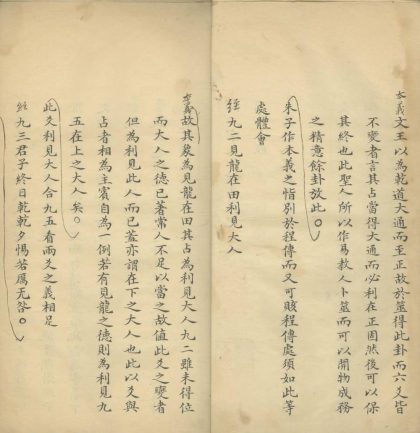 本義文王以為乾道大通而至正故於筮得此卦而六爻皆
不變者言其占當得大通而必利在正固然後可以保
其終也此聖人所以作易教人卜筮而可以開物成務
之精意餘卦放此。
朱子作本義之恉別於程傳而又可賅程傳處須如此等
處體會
經九二見龍在田利見大人
本義故其象為見龍在田其占為利見大人九二雖未得位
而大人之德已著常人不足以當之故值此爻之變者
但為利見此人而已蓋亦謂在下之大人也此以爻與
占者相為主賓自為一例若有見龍之德則為利見九
五在上之大人矣。
此爻利見大人合九五看兩爻之義相足
經九三君子終日乾乾夕惕若厲无咎。